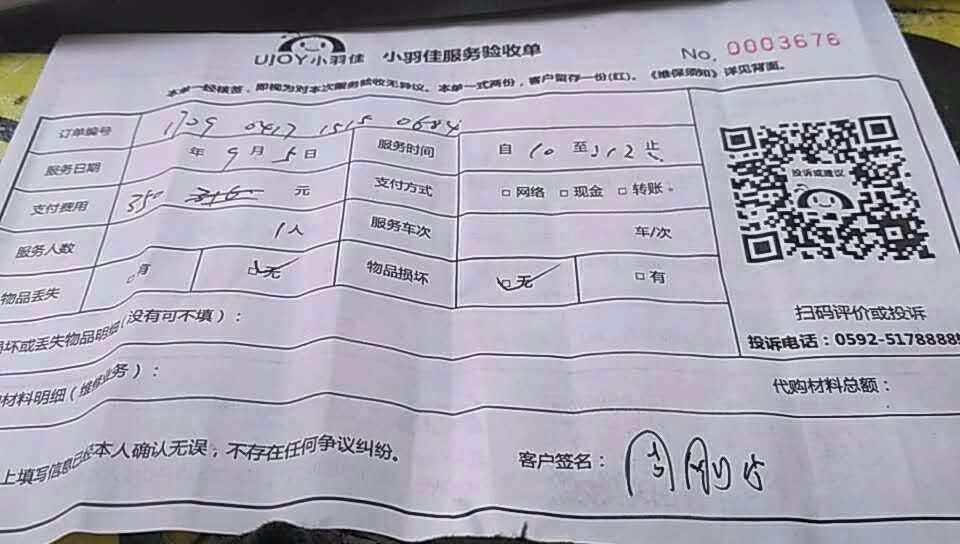 UJOY小羽佳 小羽佳服务验收单 No. 0003676
本单一经核签，即视为对本次服务验收无异议。本单一式两份，客户留存一份(红)。《维保须知》详见背面。
订单编号 1709 0417 1515 0684
服务日期 年 9 月 5 日 服务时间 自 10 至 312 止
支付费用 350 元 支付方式 □ 网络 □ 现金 □ 转账。
服务人数 1 人 服务车次 车/次
物品丢失 □有 □无 物品损坏 □无 □有
投诉或建议
扫码评价或投诉
投诉电话：0592-5178888
坏或丢失物品明细(没有可不填)：
材料明细(维修业务)： 代购材料总额：
上填写信息已经本人确认无误，不存在任何争议纠纷。 客户签名：